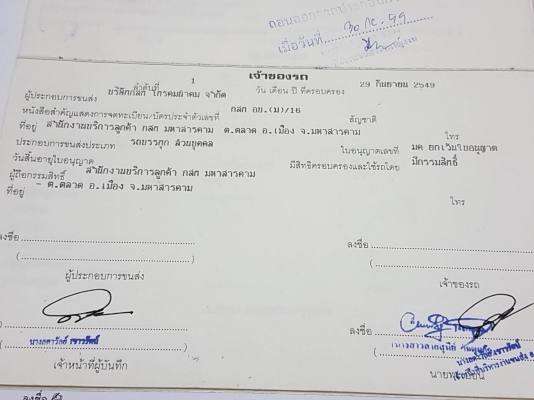 ถอนออกจากประกอบก
เมื่อวันที่ 30 กย. 55
เจ้าของรถ
ลำดับที่ 1 วัน เดือน ปี ที่ครอบครอง 29 กันยายน 2549
ผู้ประกอบการขนส่ง บริษัทกสท โทรคมนาคม จำกัด
หนังสือสำคัญแสดงการจดทะเบียน/บัตรประจำตัวเลขที่ กสท อข.(ม)/16 สัญชาติ
ที่อยู่ สำนักงานบริการลูกค้า กสท มหาสารคาม ต.ตลาด อ.เมือง จ.มหาสารคาม โทร
ประกอบการขนส่งประเภท รถบรรทุก ส่วนบุคคล ใบอนุญาตเลขที่ มค ยกเว้นใบอนุญาต
วันสิ้นอายุใบอนุญาต มีสิทธิครอบครองและใช้รถโดย มีกรรมสิทธิ์
ผู้ถือกรรมสิทธิ์ สำนักงานบริการลูกค้า กสท มหาสารคาม
ที่อยู่ - ต.ตลาด อ.เมือง จ.มหาสารคาม โทร
ลงชื่อ ลงชื่อ
( ) (
ผู้ประกอบการขนส่ง เจ้าของรถ
ลงชื่อ
เจ้าหน้าที่ผู้บันทึก นายทะเบียน
ลงชื่อ